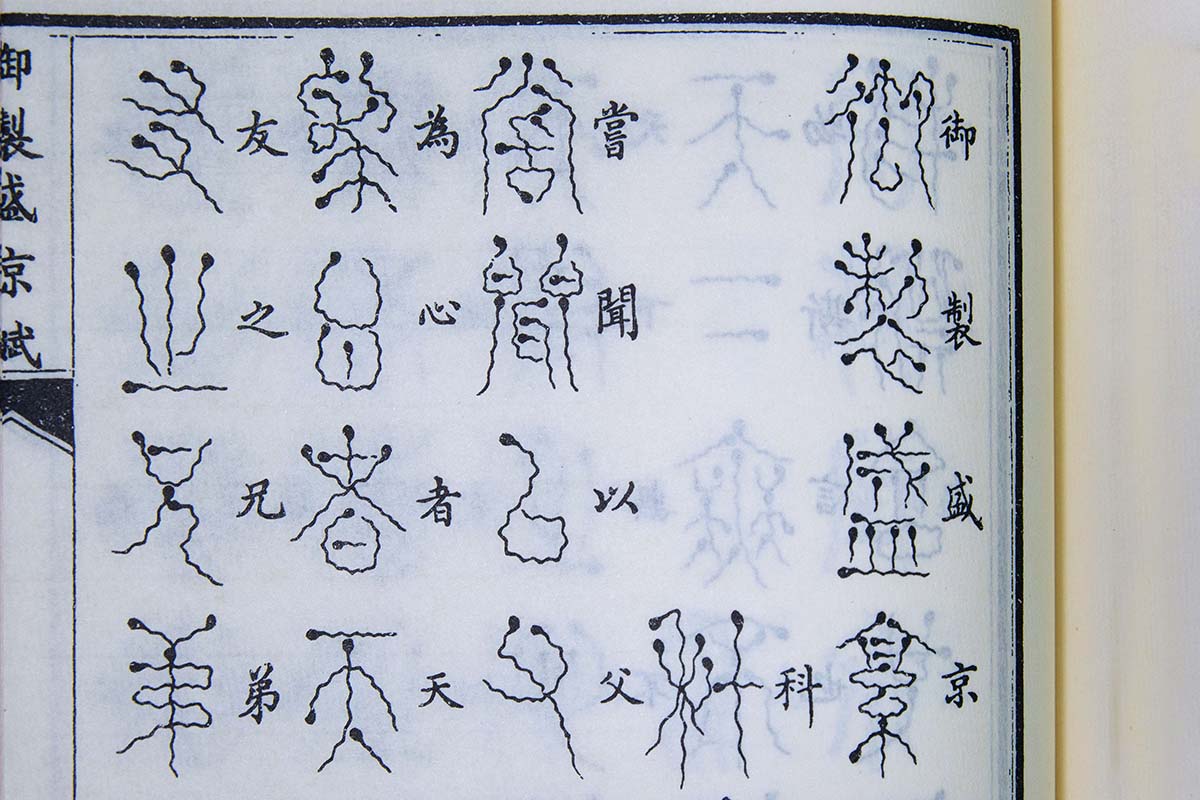 御製盛京
科
嘗聞以父
為心者天
友之兄弟
御製盛京賦